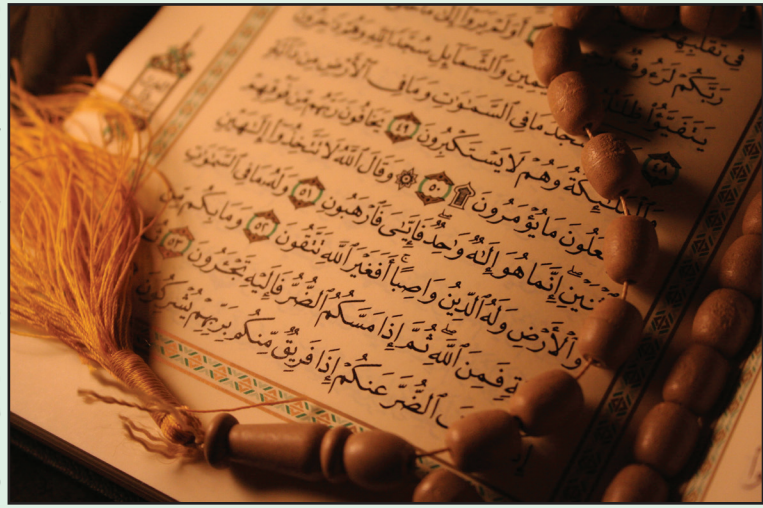 فِي تَقَلُّبِهِمْ
رَبَّكُمْ لَرَءُوفٌ أَوَلَمْ يَرَوْا۟ إِلَىٰ مَا
يَتَفَيَّؤُا۟ ظِلَٰلُهُۥ ٱلْيَمِينِ وَٱلشَّمَآئِلِ سُجَّدًا لِّلَّهِ وَهُمْ دَٰخِرُونَ
٤٨ يَسْجُدُ مَا فِى ٱلسَّمَٰوَٰتِ وَمَا فِى ٱلْأَرْضِ مِن دَآبَّةٍ
وَٱلْمَلَٰٓئِكَةُ وَهُمْ لَا يَسْتَكْبِرُونَ ٤٩ يَخَافُونَ رَبَّهُم مِّن فَوْقِهِمْ
وَيَفْعَلُونَ مَا يُؤْمَرُونَ ۩ ٥٠ ۞ وَقَالَ ٱللَّهُ لَا تَتَّخِذُوٓا۟ إِلَٰهَيْنِ
ٱثْنَيْنِ ۖ إِنَّمَا هُوَ إِلَٰهٌ وَٰحِدٌ ۖ فَإِيَّٰىَ فَٱرْهَبُونِ ٥١ وَلَهُۥ مَا فِى ٱلسَّمَٰوَٰتِ
وَٱلْأَرْضِ وَلَهُ ٱلدِّينُ وَاصِبًا ۚ أَفَغَيْرَ ٱللَّهِ تَتَّقُونَ ٥٢ وَمَا بِكُم مِّن
فَمِنَ ٱللَّهِ ۖ ثُمَّ إِذَا مَسَّكُمُ ٱلضُّرُّ فَإِلَيْهِ تَجْـَٔرُونَ ٥٣
ٱلضُّرَّ عَنكُمْ إِذَا فَرِيقٌ مِّنكُم بِرَبِّهِمْ يُشْرِكُونَ